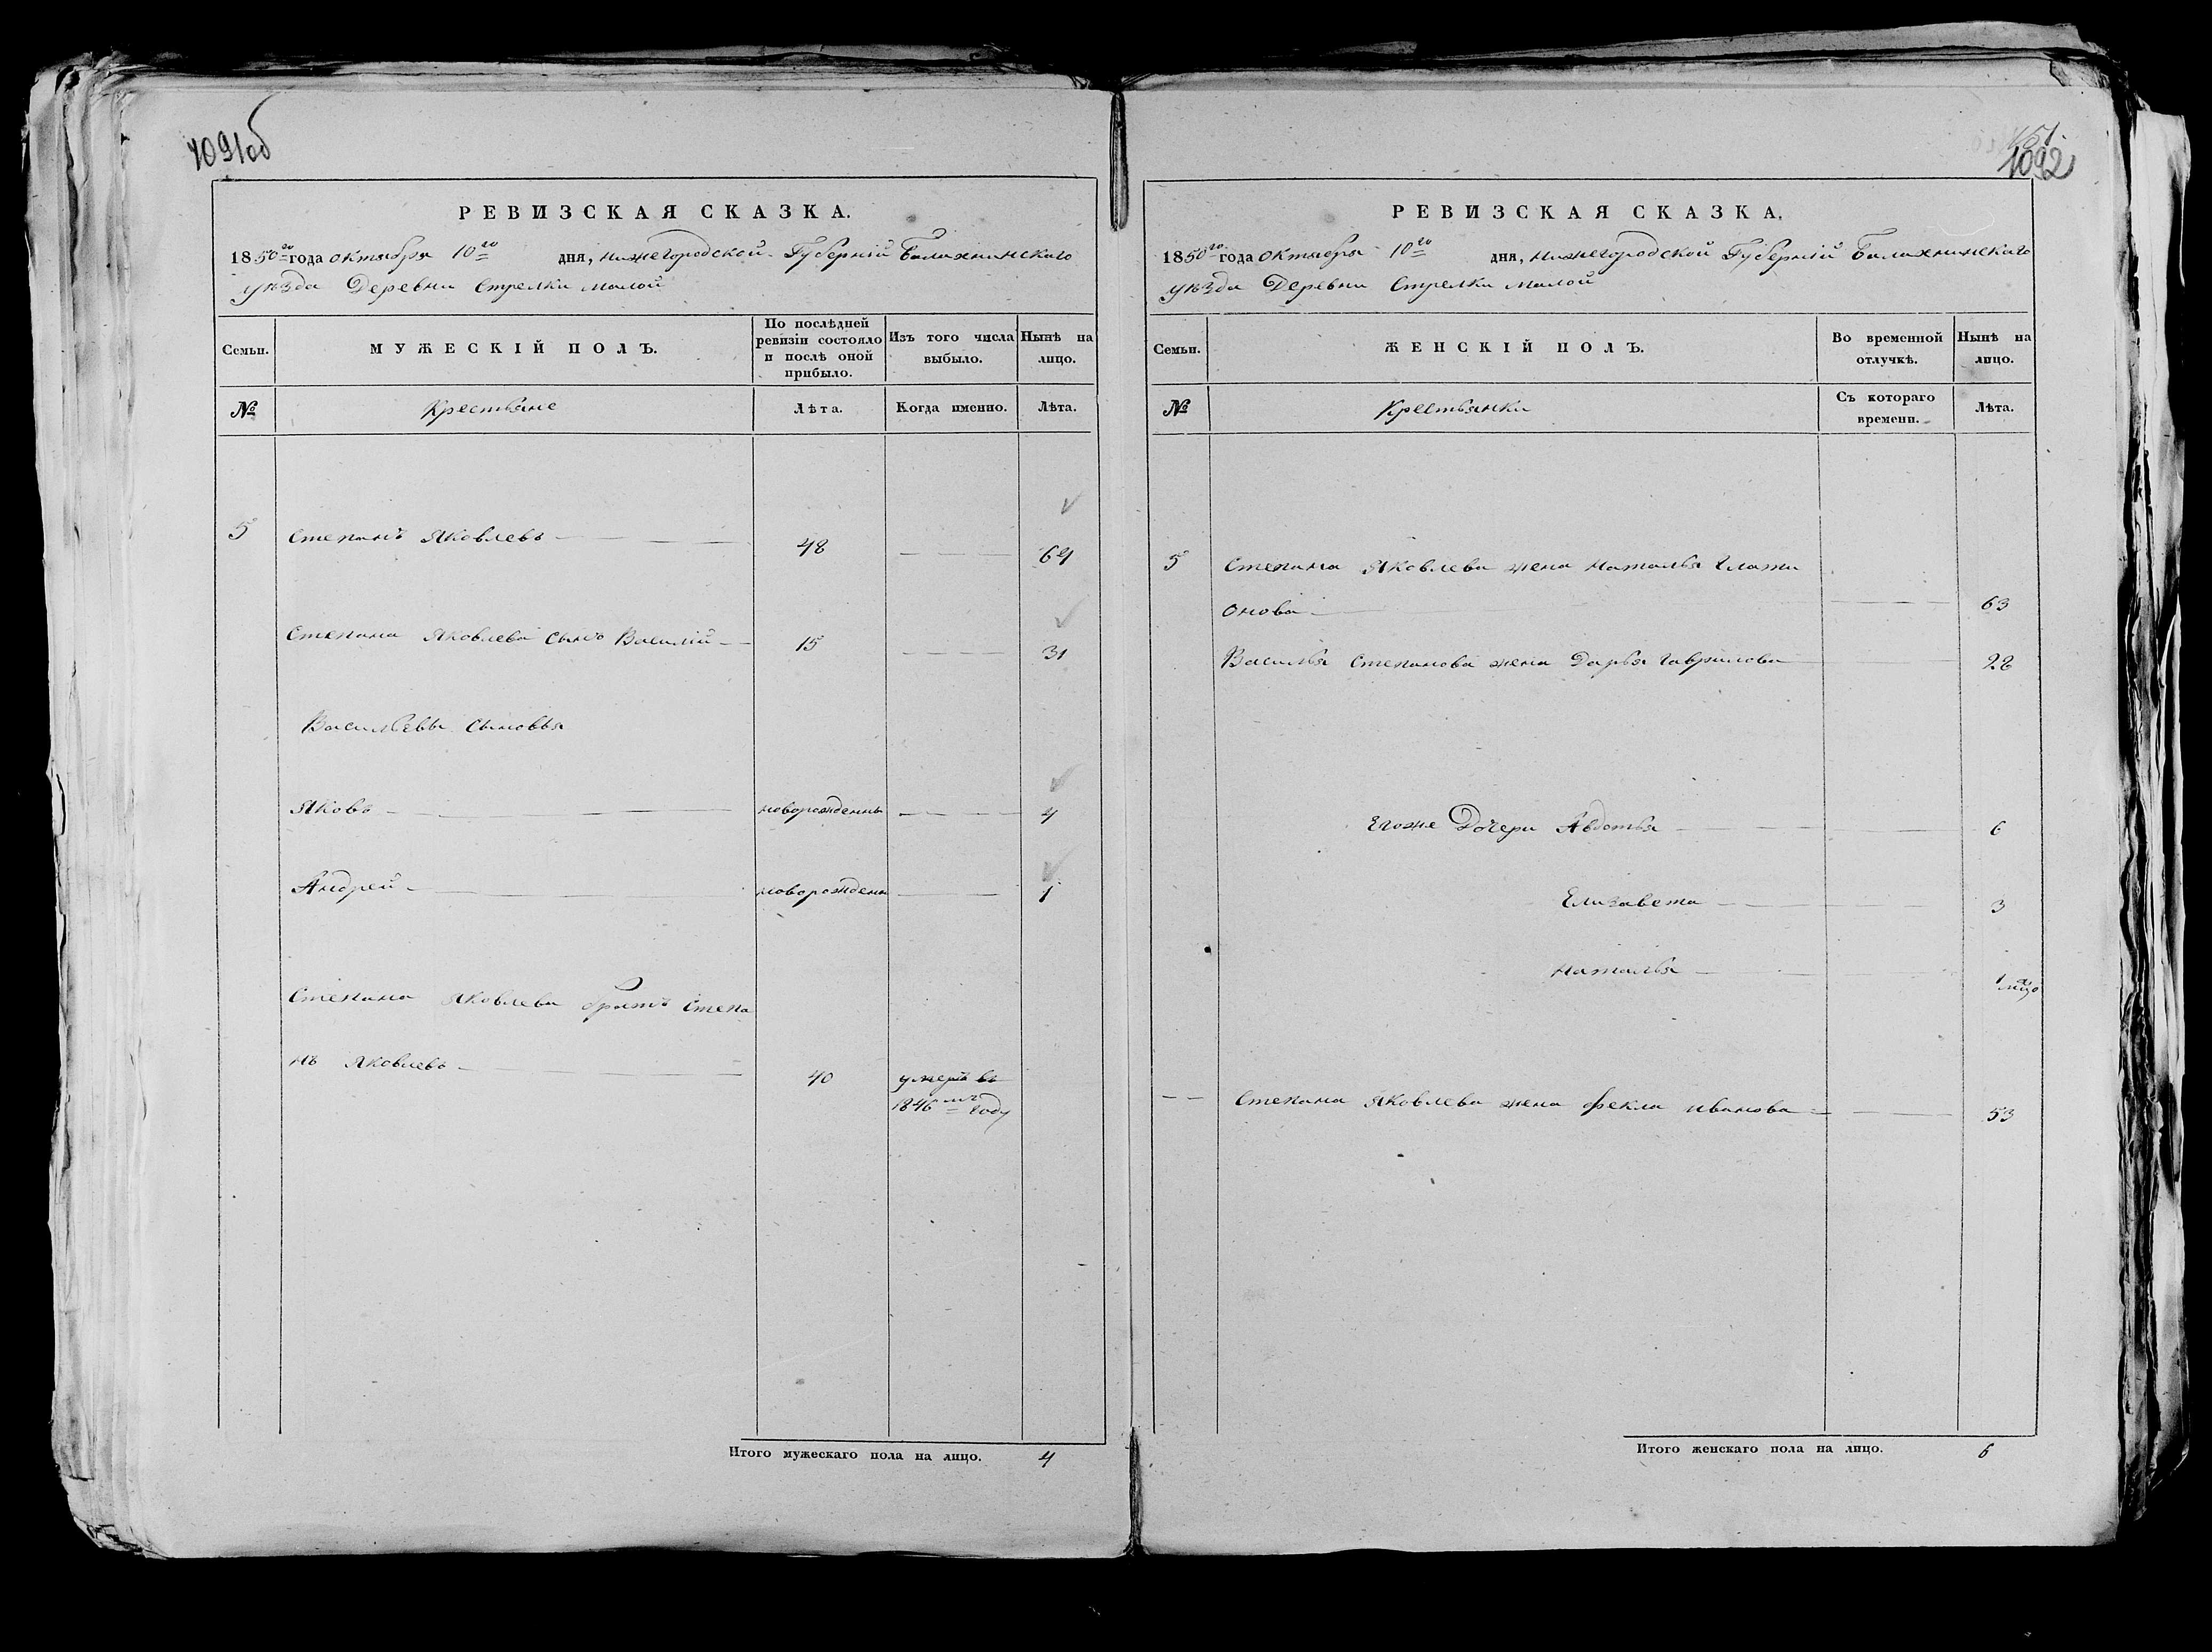 1091об
РЕВИЗСКАЯ СКАЗКА.
1850го года октября 10го дня, нижегородской Губерній Балахнинскаго
уѣзда Деревни Стрелки малой
Семьи.
МУЖЕСКІЙ ПОЛЪ.
По послѣдней ревизіи состояло и послѣ оной прибыло.
Изъ того числа выбыло.
Нынѣ на лицо.
№
Крестьяне
Лѣта.
Когда именно.
Лѣта.
5 Степанъ Яковлевъ 48 64
Степана Яковлева сынъ Василій 15 31
Васильевы сыновья
Яковъ новорожденны 4
Андрей новорожденн 1
Степана Яковлева братъ Степа
нъ Яковлевъ 40 умеръ въ
1846мъ году
Итого мужескаго пола на лицо. 4
1092
РЕВИЗСКАЯ СКАЗКА.
1850го года октября 10го дня, нижегородской Губерній Балахнинскаго
уѣзда Деревни Стрелки малой
Семьи.
ЖЕНСКІЙ ПОЛЪ.
Во временной отлучкѣ.
Нынѣ на лицо.
№
Крестьянки
Съ котораго времени.
Лѣта.
5 Степана Яковлева жена Наталья
онова 63
Василья Степанова жена Дарья Гаврилова 28
Егоже Дочери Авдотья 6
Елизавета 3
Наталья 1
Степана Яковлева жена Фекла Иванова 53
Итого женскаго пола на лицо. 6